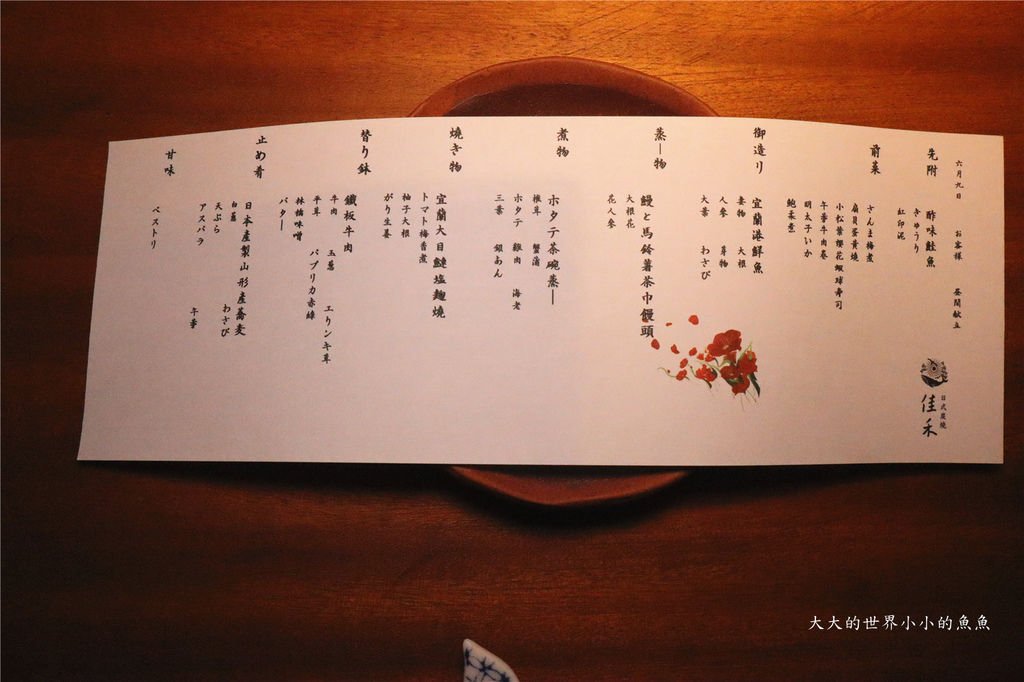 六月九日 お客様 昼間献立
先附
酢味鮭魚
きゅうり
紅印泥
前菜
さんま梅煮
扇貝蛋黄燒
小松葉櫻花蝦球寿司
午蒡牛肉巻
明太子いか
鮑柔煮
御造り
宜蘭港鮮魚
妻物 大根
人参 芽物
大葉 わさび
蒸し物
鰻と馬鈴薯茶巾饅頭
大根花
花人参
煮物
ホタテ茶碗蒸し
椎茸 蟹蒲
ホタテ 雞肉 海老
三葉 銀あん
燒き物
宜蘭大目鰱塩麹燒
トマト梅香煮
柚子大根
がり生姜
替り鉢
鐵板牛肉
牛肉 玉葱 エリンギ茸
平茸 パプリカ赤緑
林檎味噌
バター
止め肴
日本産製山形産蕎麦
白葱 わさび
天ぷら
アスパラ 午蒡
甘味
ペストリ
日式炭燒
佳禾
大大的世界小小的魚魚